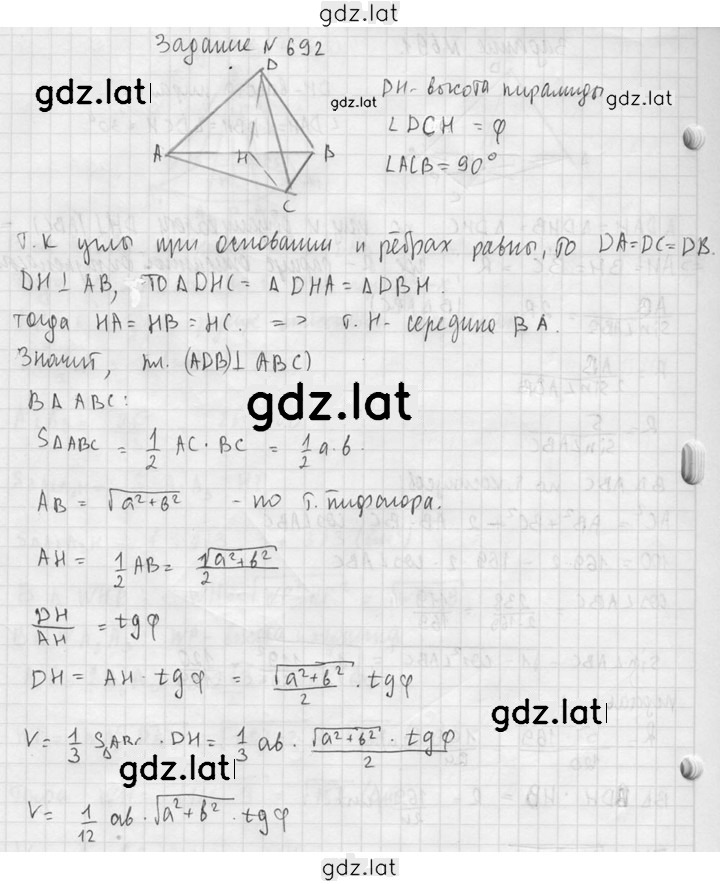 gdz.lat
Задание N 692
D
A
H
B
C
gdz.lat
gdz.lat
gdz.lat
DH - высота пирамиды
∠DCH = φ
∠ACB = 90°
Т.к углы при основании и рёбрах равны, то DA = DC = DB.
DH ⊥ AB, то △DHC = △DHA = △DBH.
тогда HA = HB = HC. => т. H - середина BA.
Значит, пл. (ADB) ⊥ ABC)
В △ ABC:
gdz.lat
S△ABC = 1/2 AC · BC = 1/2 a · b.
AB = √(a²+b²) - по т. Пифагора.
AH = 1/2 AB = √(a²+b²)/2
DH/AH = tgφ
DH = AH · tgφ = √(a²+b²)/2 · tgφ
gdz.lat
V = 1/3 SABC · DH = 1/3 ab · √(a²+b²) · tgφ/2
gdz.lat
V = 1/12 ab · √(a²+b²) · tgφ
gdz.lat